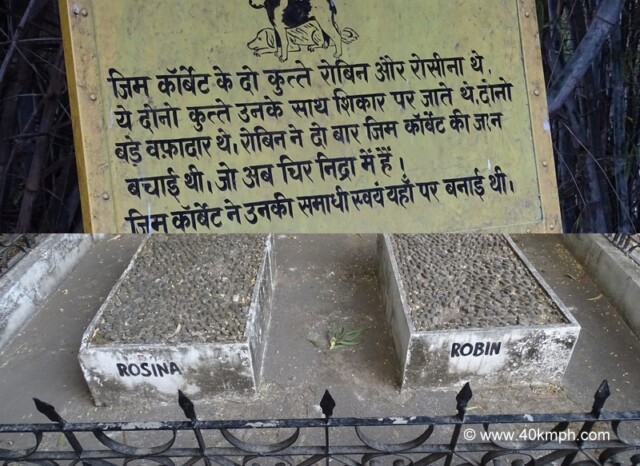 जिम कॉर्बेट के दो कुत्ते रोबिन और रोसीना थे,
ये दोनो कुत्ते उनके साथ शिकार पर जाते थे, दोनो
बड़े वफ़ादार थे, रोबिन ने दो बार जिम कॉर्बेट की जान
बचाई थी, जो अब चिर निद्रा में हैं।
जिम कॉर्बेट ने उनकी समाधी स्वयं यहाँ पर बनाई थी।
ROSINA
ROBIN
© www.40kmph.com